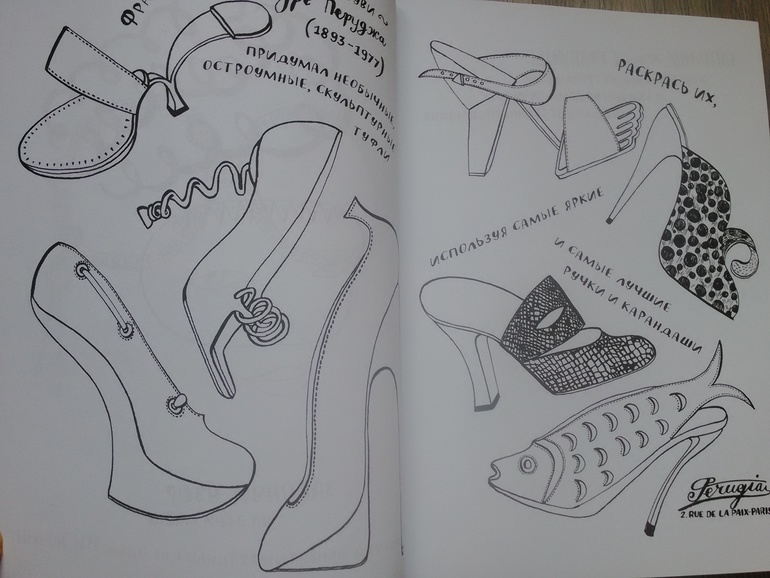 Перуджа
(1893-1977)
ПРИДУМАЛ НЕОБЫЧНЫЕ,
ОСТРОУМНЫЕ, СКУЛЬПТУРНЫЕ
ТУФЛИ
РАСКРАСЬ ИХ,
ИСПОЛЬЗУЯ САМЫЕ ЯРКИЕ
И САМЫЕ ЛУЧШИЕ
РУЧКИ И КАРАНДАШИ
Perugia
2. RUE DE LA PAIX-PARIS